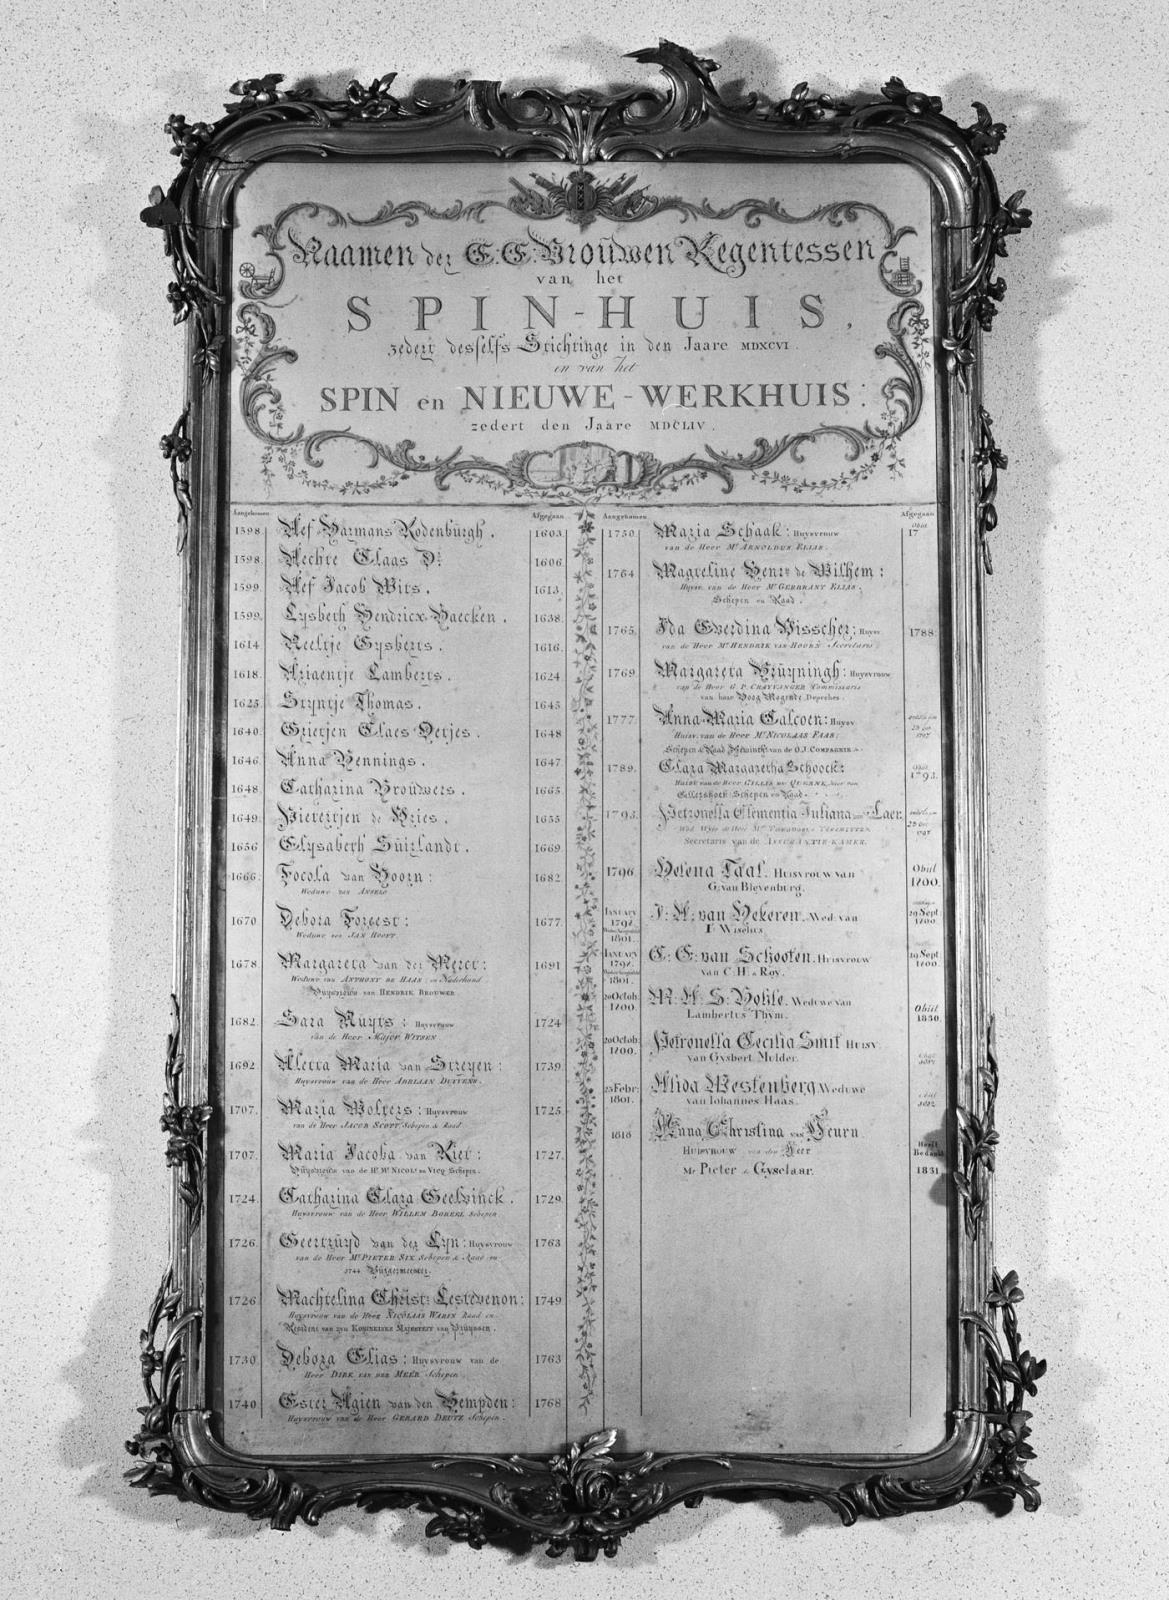 Naamen der E: E: Vrouwen Regentessen
van het
SPIN-HUIS,
zedert desselfs Stichtinge in den Jaare MDXCVI.
en van het
SPIN en NIEUWE-WERKHUIS:
zedert den Jaare MDCLIV.
Aangekomen Afgegaan
1598. Aef Harmans Rodenburgh. 1603.
1598. Aechte Claas Dr. 1606.
1599. Aef Jacob Wits. 1613.
1599. Lysbeth Hendricx Baecken. 1638.
1614. Neeltje Gysberts. 1616.
1618. Ariaentje Lamberts. 1624
1625. Stryntje Thomas. 1645
1640. Grietjen Claes Oetjes. 1648
1646. Anna Hennings. 1647.
1648. Catharina Brouwers. 1665.
1649. Pieretrjen de Vries. 1655
1656 Elysabeth Suirlandt. 1669.
1666. Focola van Hoorn: 1682.
Weduwe van ANSELO
1670 Debora Foreest: 1677.
Weduwe van JAN HOOFT.
1678. Margareta van der Merct: 1691
Weduwe van ANTHONY DE HAAS: en Naderhand
Huysvrouw van HENDRIK BROUWER
1682. Sara Muyts: Huysvrouw 1724
van de Heer Major WITSEN
1692 Aletta Maria van Streyen: 1739.
Huysvrouw van de Heer ADRIAAN DUYVENS.
1707. Maria Wolters: Huysvrouw 1725.
van de Heer JACOB SCOTT Schepen & Raad
1707. Maria Jacoba van Riet: 1727.
Huysvrouw van de Hr. Mr. NICOLs DE VICQ Schepen.
1724. Catharina Clara Geelvinck. 1729.
Huysvrouw van de Heer WILLEM BOREEL Schepen.
1726. Geertruyd van der Lyn: Huysvrouw 1763
van de Heer Mr. PIETER SIX Schepen & Raad en
1744. Burgermeester.
1726 Machtelina Christ: Lestevenon: 1749
Huysvrouw van de Heer NICOLAAS WARIN Raad en
Resident van zyn KONINKLYKE MAJESTEYT van Pruyssen.
1730. Debora Elias: Huysvrouw van de 1763
Heer DIRK VAN DER MEER Schepen
1740 Ester Agien van den Hempden: 1768
Huysvrouw van de Heer GERARD DEUTZ Schepen.
Aangekomen Afgegaan
1750. Maria Schaak: Huysvrouw Obiit 17
van de Heer Mr. ARNOLDUS ELIAS.
1764 Magteline Henr. de Wilhem:
Huysv. van de Heer Mr. GERBRANT ELIAS.
Schepen en Raad.
1765. Ida Everdina Visscher: Huysv 1788.
van de Heer Mr. HENDRIK VAN HOORN Secretaris
1769. Margareta Bruyningh: Huysvrouw
van de Heer G. P. CRAYVANGER Commissaris
van haar Hoog Mogende Depeches.
1777. Anna Maria Calcoen: Huysv
Huisv. van de Heer Mr. NICOLAAS FAAS;
Schepen & Raad Bewinth: van de O.I. COMPAGNIE.
1789. Clara Margaretha Schoock: Obiit 1793.
Huisv van de Heer GILLIS DE
Schepen en Raad
1793. Petronella Clementia Juliana van Laer
Secretaris van de ASSURANTIE-KAMER.
1796. Helena Taal. Huisvrouw van Obiit 1800.
G. van Bleyenburg.
JANUARY 1798. J: A: van Hekeren. Wed: van 29 Sept: 1800.
1801. Ir Wiselius.
JANUARY 1798. C: E: van Schooten. Huisvrouw 19 Sept: 1800.
1801. van C.H. a Roy.
20 Octob: 1800. M: A: S: Bohle. Weduwe van Obiit 1830.
Lambertus Thym.
20 Octob: 1800. Petronella Cecilia Smit Huisv.
van Gysbert Mulder.
23 Febr: 1801. Alida Westenberg. Weduwe
van Iohannes Haas.
1818 Anna Christina van Veurn Heeft Bedankt
HUISVROUW van den Heer
Mr Pieter de Gyselaar. 1831